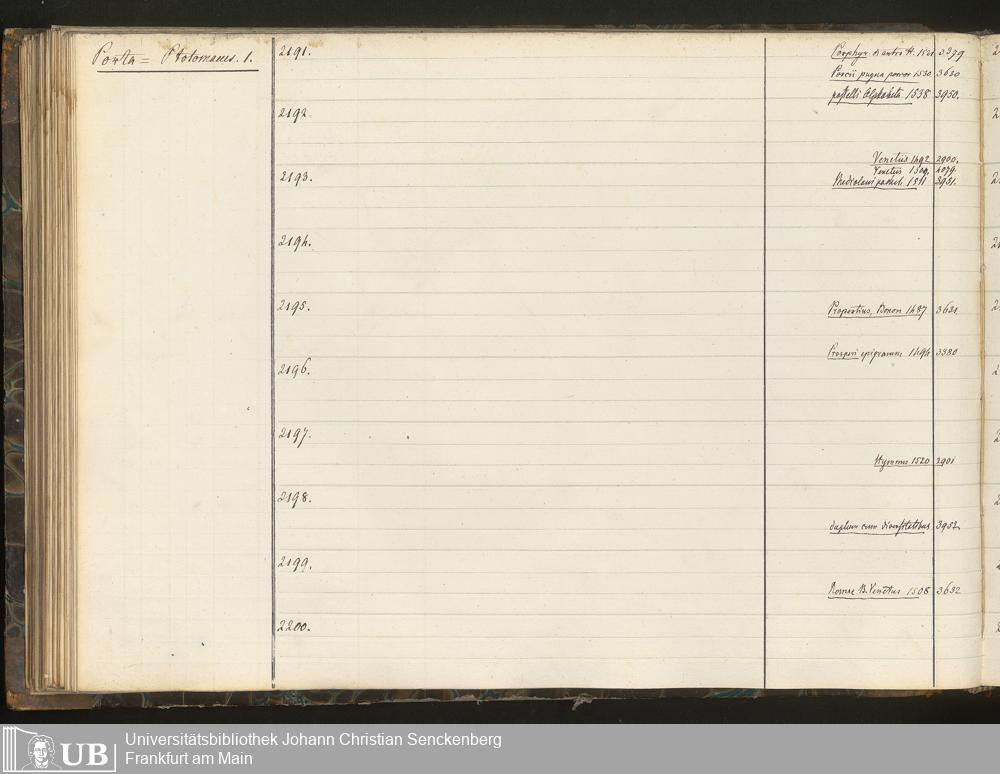 Porta = Ptolomaeus. 1.
2191.
Porphyr. d antro H. 1521 3379
Porcii pugna porcor 1530 3630
postelli Alphabeta 1538 3950.
2192.
Venetiis 1492 2900.
Venetiis 1509. 4079.
2193.
Mediolani 1511 3951.
2194.
2195.
Propertius, Bonon 1487 3631
Prosperi epigramm 1494 3380
2196.
2197.
Hymnus 1520 2901
2198.
duplum cum 3952.
2199.
Romae B. Venetus 1508 3632
2200.
UB
Universitätsbibliothek Johann Christian Senckenberg
Frankfurt am Main